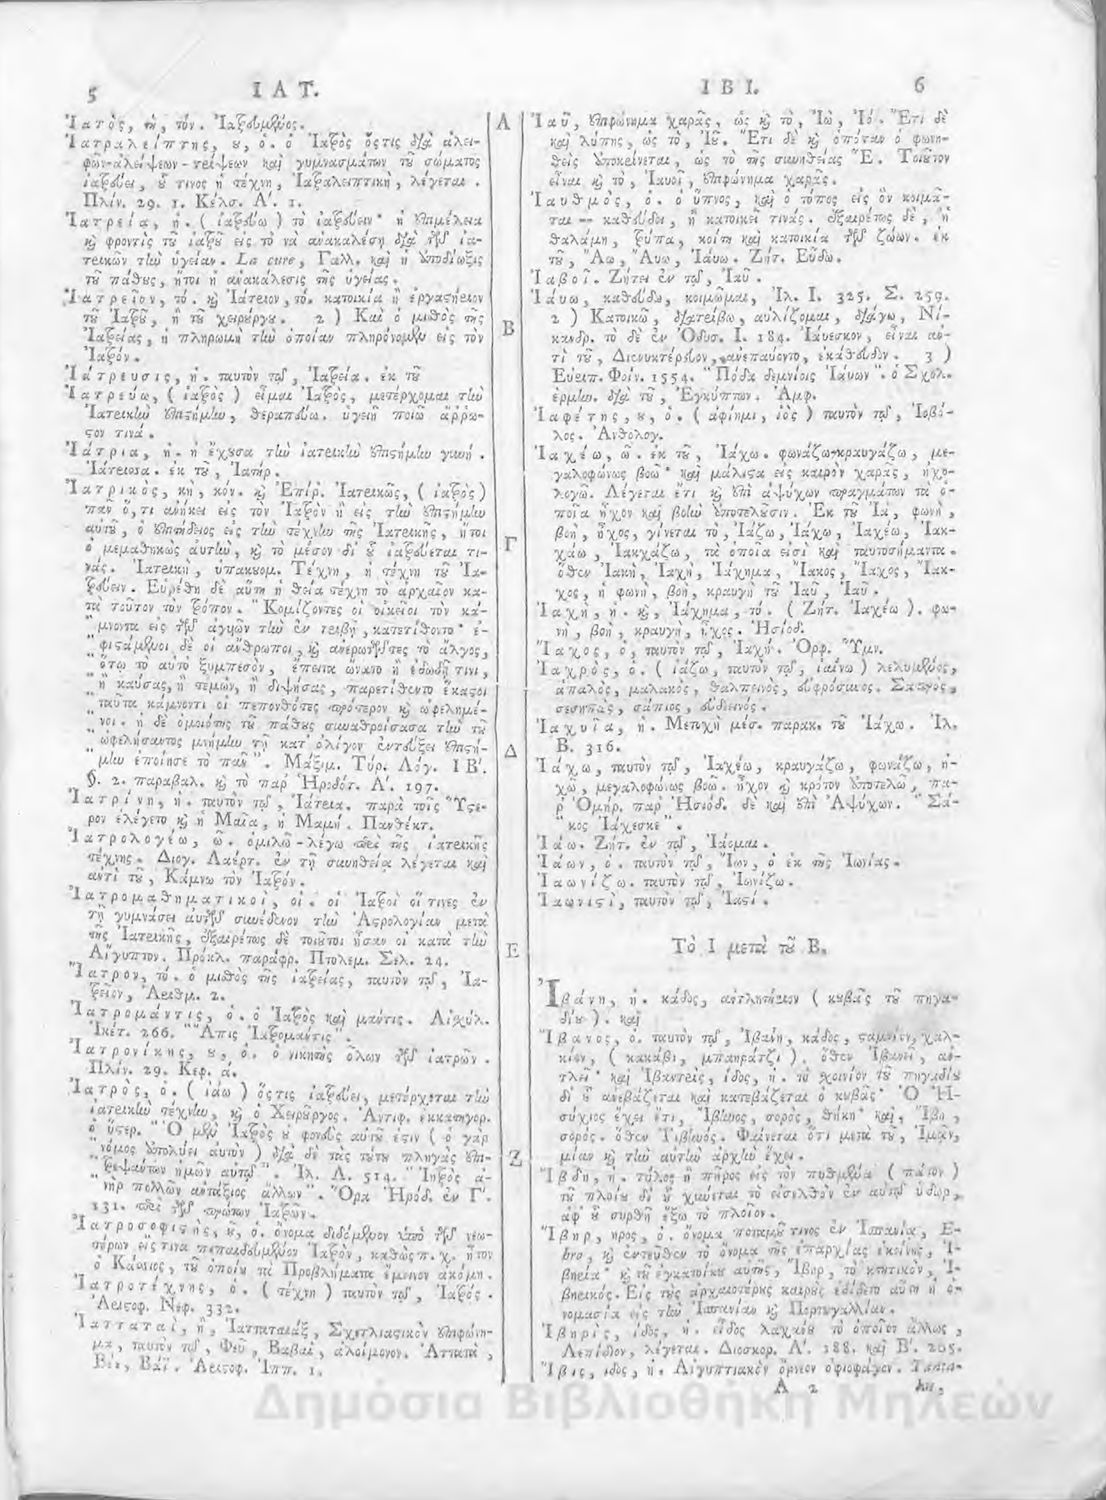 5 ΙΑΤ.
Ἰατός, τὴ, τόν. Ἰατρευμένος.
Ἰατραλείπτης, ου, ὁ. ὁ Ἰατρὸς ὅςτις διὰ ἀλει-
φῶν-ἀλείψεων-τρίψεων καὶ γυμνασμάτων τοῦ σώματος
ἰατρεύει, οὗ τινος ἡ τέχνη, Ἰατραλειπτικὴ, λέγεται.
Πλίν. 29. 1. Κέλσ. Α΄. 1.
Ἰατρεία, ἡ. ( ἰατρεύω ) τὸ ἰατρεύειν· ἡ ἐπιμέλεια
καὶ φροντὶς τοῦ ἰατροῦ εἰς τὸ νὰ ἀνακαλέσῃ διὰ τῶν ἰα-
τρικῶν τὴν ὑγείαν. La cure, Γαλλ. καὶ ἡ
τοῦ πάθους, ἤτοι ἡ ἀνακάλεσις τῆς ὑγείας.
Ἰατρεῖον, τό. καὶ Ἰάτριον, τό. κατοικία ἢ ἐργαστήριον
τοῦ Ἰατροῦ, ἢ τοῦ χειρούργου. 2 ) Καὶ ὁ μισθὸς τῆς
Ἰατρείας, ἡ πληρωμὴ τὴν ὁποίαν πληρόνομεν εἰς τὸν
Ἰατρόν.
Ἰάτρευσις, ἡ. ταυτὸν τῷ, Ἰατρεία. ἐκ τοῦ
Ἰατρεύω, ( ἰατρὸς ) εἶμαι Ἰατρὸς, μετέρχομαι τὴν
Ἰατρικὴν ἐπιστήμην, θεραπεύω. ὑγειῆ ποιῶ ἄῤῥω-
στον τινά.
Ἰάτρια, ἡ. ἡ ἔχουσα τὴν ἰατρικὴν ἐπιστήμην γυνή.
Ἰάτρισσα. ἐκ τοῦ, Ἰατήρ.
Ἰατρικὸς, κὴ, κόν. καὶ Ἐπίρ. Ἰατρικῶς, ( ἰατρὸς )
πᾶν ὅ,τι ἀνήκει εἰς τὸν Ἰατρὸν ἢ εἰς τὴν ἐπιστήμην
αὐτοῦ, ὁ ἐπιτήδειος εἰς τὴν τέχνην τῆς Ἰατρικῆς, ἤτοι
ὁ μεμαθηκὼς αὐτὴν, καὶ τὸ μέσον δι᾽ οὗ ἰατρεύεται τι-
νάς. Ἰατρικὴ, ὑπακουομ. Τέχνη, ἡ τέχνη τοῦ Ἰα-
τρεύειν. Εὑρέθη δὲ αὕτη ἡ θεία τέχνη τὸ ἀρχαῖον κα-
τὰ τοῦτον τὸν τρόπον. "Κομίζοντες οἱ οἰκεῖοι τὸν κά-
"μνοντα εἰς τῶν ἀγυιῶν τὴν ἐν τριβῇ, κατετίθεντο· ἐ-
"φιστάμενοι δὲ οἱ ἄνθρωποι, καὶ ἀνερωτῶντες τὸ ἄλγος,
"ὅτῳ τὸ αὐτὸ ξυμπεσὸν, ἔπειτα ὤνατο ἢ ἐδωδῇ τινι,
"ἢ καύσας, ἢ τεμὼν, ἢ διψήσας, παρετίθεντο ἕκαστοι
"ταῦτα κάμνοντι οἱ πεπονθότες πρότερον καὶ ὠφελημέ-
"νοι. ἡ δὲ ὁμοιότης τοῦ πάθους συναθροίσασα τὴν τοῦ
"ὠφελήσαντος μνήμην τῇ κατ᾽ ὀλίγον ἐντεύξει ἐπιστή-
μην ἐποίησε τὸ πᾶν". Μάξιμ. Τύρ. Λόγ. ΙΒ΄.
§. 2. παραβαλ. καὶ τὸ παρ᾽ Ἡροδότ. Α΄. 197.
Ἰατρίνη, ἡ. ταυτὸν τῷ, Ἰάτρια. παρὰ τοῖς Ὕστε-
ρον ἐλέγετο καὶ ἡ Μαῖα, ἡ Μαμή. Πανδέκτ.
Ἰατρολογέω, ῶ. ὁμιλῶ-λέγω περὶ τῆς ἰατρικῆς
τέχνης. Διογ. Λαέρτ. ἐν τῇ συνηθείᾳ λέγεται καὶ
ἀντὶ τοῦ, Κάμνω τὸν Ἰατρόν.
Ἰατρομαθηματικοί, οἱ. οἱ Ἰατροὶ οἵτινες ἐν
τῇ γυμνάσει αὐτῶν συνέδενον τὴν Ἀστρολογίαν μετὰ
τῆς Ἰατρικῆς, ἐξαιρέτως δὲ τοιοῦτοι ἦσαν οἱ κατὰ τὴν
Αἴγυπτον. Πρόκλ. παράφρ. Πτολεμ. Σελ. 24.
Ἴατρον, τό. ὁ μισθὸς τῆς ἰατρείας, ταυτὸν τῷ, Ἰα-
τρεῖον, Ἀριθμ. 2.
Ἰατρόμαντις, ὁ. ὁ Ἰατρὸς καὶ μάντις. Αἰσχύλ.
Ἱκέτ. 266. "Ἆπις Ἰατρόμαντις".
Ἰατρονίκης, ου, ὁ. ὁ νικητὴς ὅλων τῶν ἰατρῶν.
Πλίν. 29. Κεφ. α.
Ἰατρὸς, ὁ. ( ἰάω ) ὅστις ἰατρεύει, μετέρχεται τὴν
ἰατρικὴν τέχνην, καὶ ὁ Χειρουργος. Ἀντιφ. εκκατηγορ.
ὁ ὕστερ. "Ὁ μὲν Ἰατρὸς οὐ φονεὺς αὐτοῦ ἐστιν ( ὁ γὰρ
"νόμος ἀπολύει αὐτὸν ) διὰ δὲ τὰς τούτου πληγὰς ἐπι-
"τρεψάντων ἡμῶν αὐτῷ". Ἰλ. Λ. 514. "Ἰητρὸς ἀ-
νὴρ πολλῶν ἀντάξιος ἄλλων". Ὅρα Ἡρόδ. ἐν Γ΄.
131. περὶ τῶν πρώτων Ἰατρῶν.
Ἰατροσοφιστής, οῦ, ὁ. ὄνομα διδόμενον ὑπὸ τῶν νεω-
τέρων εἴς τινα πεπαιδευμένον Ἰατρὸν, καθὼς π. χ. ἦτον
ὁ Κάσσιος, τοῦ ὁποίου τὰ Προβλήματα ἔμεινον ἀκόμη.
Ἰατροτέχνης, ὁ. ( τέχνη ) ταυτὸν τῷ, Ἰατρός.
Ἀριστοφ. Νεφ. 332.
Ἰατταταὶ, ἢ, Ἰατταταιὰξ, Σχετλιαστικὸν ἐπιφώνη-
μα, ταυτὸν τῷ, Φεῦ, Βαβαὶ, ἀλοίμονον. Ἀτταταὶ,
Ἀριστοφ. Ἱππ. 1.
Α
Β
Γ
Δ
Ε
Ζ
ΙΒΙ. 6
Ἰαῦ, ἐπιφώνημα χαρᾶς, ὡς καὶ τὸ, Ἰὼ, Ἰό. Ἔτι δὲ
καὶ λύπης, ὡς τὸ, Ἰοῦ. Ἔτι δὲ καὶ ὁπόταν ὁ φωνη-
θεὶς ἀποκρίνεται, ὡς τὸ τῆς συνηθείας Ἔ. Τοιοῦτον
εἶναι καὶ τὸ, Ἰαυοῖ, ἐπιφώνημα χαρᾶς.
Ἰαυθμὸς, ὁ. ὁ ὕπνος, καὶ ὁ τόπος εἰς ὃν κοιμᾶ-
ται — καθεύδει, ἢ κατοικεῖ τινάς. ἐξαιρέτως δὲ, ἡ
θαλάμη, τρύπα, κοίτη καὶ κατοικία τῶν ζώων. ἐκ
τοῦ, Ἄω, Ἄυω, Ἰάυω. Ζήτ. Εὕδω.
Ἰαβοῖ. Ζήτει ἐν τῷ, Ἰαῦ.
Ἰάυω, καθεύδω, κοιμῶμαι, Ἰλ. Ι. 325. Σ. 259.
2 ) Κατοικῶ, διατρίβω, αὐλίζομαι, διάγω, Νί-
κανδρ. τὸ δὲ ἐν Ὀδυσ. Ι. 184. Ἰάυεσκον, εἶναι ἀν-
τὶ τοῦ, Διενυκτέρευον, ἀνεπαύοντο, ἐκάθευδον. 3 )
Εὐριπ. Φοίν. 1554. "Πόδα δεμνίοις Ἰάυων". ὁ Σχολ.
ἑρμην. διὰ τοῦ, Ἐγκύπτων. Ἀμφ.
Ἰαφέτης, ου, ὁ. ( ἀφίημι, ἰὸς ) ταυτὸν τῷ, Ἰοβό-
λος. Ἀνθολογ.
Ἰαχέω, ῶ. ἐκ τοῦ, Ἰάχω. φωνάζω-κραυγάζω, με-
γαλοφώνως βοῶ· καὶ μάλιστα εἰς καιρὸν χαρᾶς, ἠχο-
λογῶ. Λέγεται ἔτι καὶ ἐπὶ ἀψύχων πραγμάτων τὰ ὁ-
ποῖα ἦχον καὶ βοὴν ἀποτελοῦσιν. Ἐκ τοῦ Ἰὰ, φωνὴ,
βοὴ, ἦχος, γίνεται τὸ, Ἰάζω, Ἰάχω, Ἰαχέω, Ἰακ-
χάω, Ἰακχάζω, τὰ ὁποῖα εἰσὶ καὶ ταυτοσήμαντα.
ὅθεν Ἰακὴ, Ἰαχὴ, Ἰάχημα, Ἴακος, Ἴαχος, Ἴακ-
χος, ἡ φωνὴ, βοὴ, κραυγὴ τοῦ Ἰαῦ, Ἰαῦ.
Ἰαχὴ, ἡ. καὶ, Ἰάχημα, τό. ( Ζήτ. Ἰαχέω ). φω-
νὴ, βοὴ, κραυγὴ, ἦχος. Ἡσίοδ.
Ἴαχος, ὁ, ταυτὸν τῷ, Ἰαχή. Ὀρφ. Ὕμν.
Ἰαχρὸς, ὁ. ( ἰάζω, ταυτὸν τῷ, ἰαίνω ) λελυμένος,
ἁπαλὸς, μαλακὸς, θαλπεινὸς, εὐφρόσυνος.
σεσηπὼς, σάπιος, εὐδιεινός.
Ἰαχυῖα, ἡ. Μετοχὴ μέσ. παρακ. τοῦ Ἰάχω. Ἰλ.
Β. 316.
Ἰάχω, ταυτὸν τῷ, Ἰαχέω, κραυγάζω, φωνάζω, ἠ-
χῶ, μεγαλοφώνως βοῶ. ἦχον καὶ κρότον ἀποτελῶ, πα-
ρ᾽ Ὁμήρ. παρ᾽ Ἡσιόδ. δὲ καὶ ἐπὶ Ἀψύχων. "Σά-
"κος Ἰάχεσκε".
Ἰάω. Ζήτ. ἐν τῷ, Ἰάομαι.
Ἰάων, ὁ. ταυτὸν τῷ, Ἴων, ὁ ἐκ τῆς Ἰωνίας.
Ἰαωνίζω. ταυτὸν τῷ, Ἰωνίζω.
Ἰαωνιστὶ, ταυτὸν τῷ, Ἰαστί.
Τὸ Ι μετὰ τοῦ Β.
Ἰβάνη, ἡ. κάδος, ἀντλητήριον ( κουβᾶς τοῦ πηγα-
δίου ). καὶ
Ἴβανος, ὁ. ταυτὸν τῷ, Ἰβάνη, κάδος, σταμνίον, χαλ-
κίον, ( κακάβι, μπακράτζι ). ὅθεν Ἰβανεῖ, ἀν-
τλεῖ· καὶ Ἰβαντρὶς, ίδος, ἡ. τὸ σχοινίον τοῦ πηγαδίου
δι᾽ οὗ ἀνεβάζεται καὶ κατεβάζεται ὁ κουβᾶς· Ὁ Ἡ-
σύχιος ἔχει ἔτι, Ἴβηνος, σορὸς, θήκη· καὶ, Ἴβα,
σορός. ὅθεν Τιβηνός. Φαίνεται ὅτι μετὰ τοῦ, Ἱμᾶν,
μίαν καὶ τὴν αὐτὴν ἀρχὴν ἔχει.
Ἴβδη, ἡ. τύλος ἢ πῆρος εἰς τὸν πυθμένα ( πάτον )
τοῦ πλοίου δι᾽ οὗ χύνεται τὸ εἰσελθὸν ἐν αὐτῷ ὕδωρ,
ἀφ᾽ οὗ συρθῇ ἔξω τὸ πλοῖον.
Ἴβηρ, ηρος, ὁ. ὄνομα ποταμοῦ τινος ἐν Ἱσπανίᾳ, E-
bro, καὶ ἐντεῦθεν τὸ ὄνομα τῆς ἐπαρχίας ἐκείνης, Ἰ-
βηρία· καὶ τοῦ ἐγκατοίκου αὐτῆς, Ἴβηρ, τὸ κτητικὸν, Ἰ-
βηρικός. Εἰς τοὺς ἀρχαιοτέρους καιροὺς ἐδίδετο αὕτη ἡ ὀ-
νομασία εἰς τὴν Ἱσπανίαν καὶ Πορτουγαλλίαν.
Ἰβηρὶς, ίδος, ἡ. εἶδος λαχάνου τὸ ὁποῖον ἄλλως,
Λεπίδιον, λέγεται. Διοσκορ. Α΄. 188. καὶ Β΄. 205.
Ἴβις, ιδος, ἡ. Αἰγυπτιακὸν ὄρνεον ὀφιοφάγον. Tanta-
Α 2 lus,
Δημόσια Βιβλιοθήκη Μηλεών